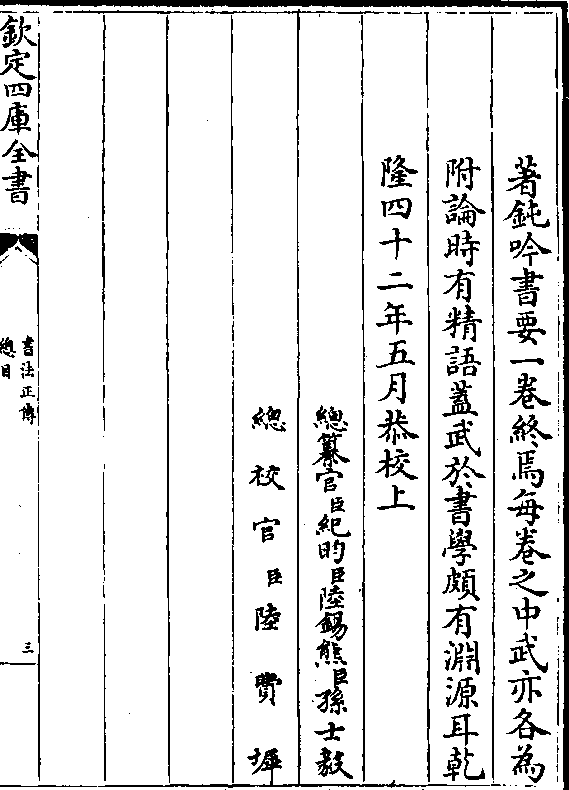 著鈍吟書要一卷終焉每卷之中武亦各為
附論時有精語蓋武於書學頗有淵源耳乾
隆四十二年五月恭校上
總纂官臣紀昀臣陸錫熊臣孫士毅
總校官臣陸費墀
欽定四庫全書
書法正傳
總目
三